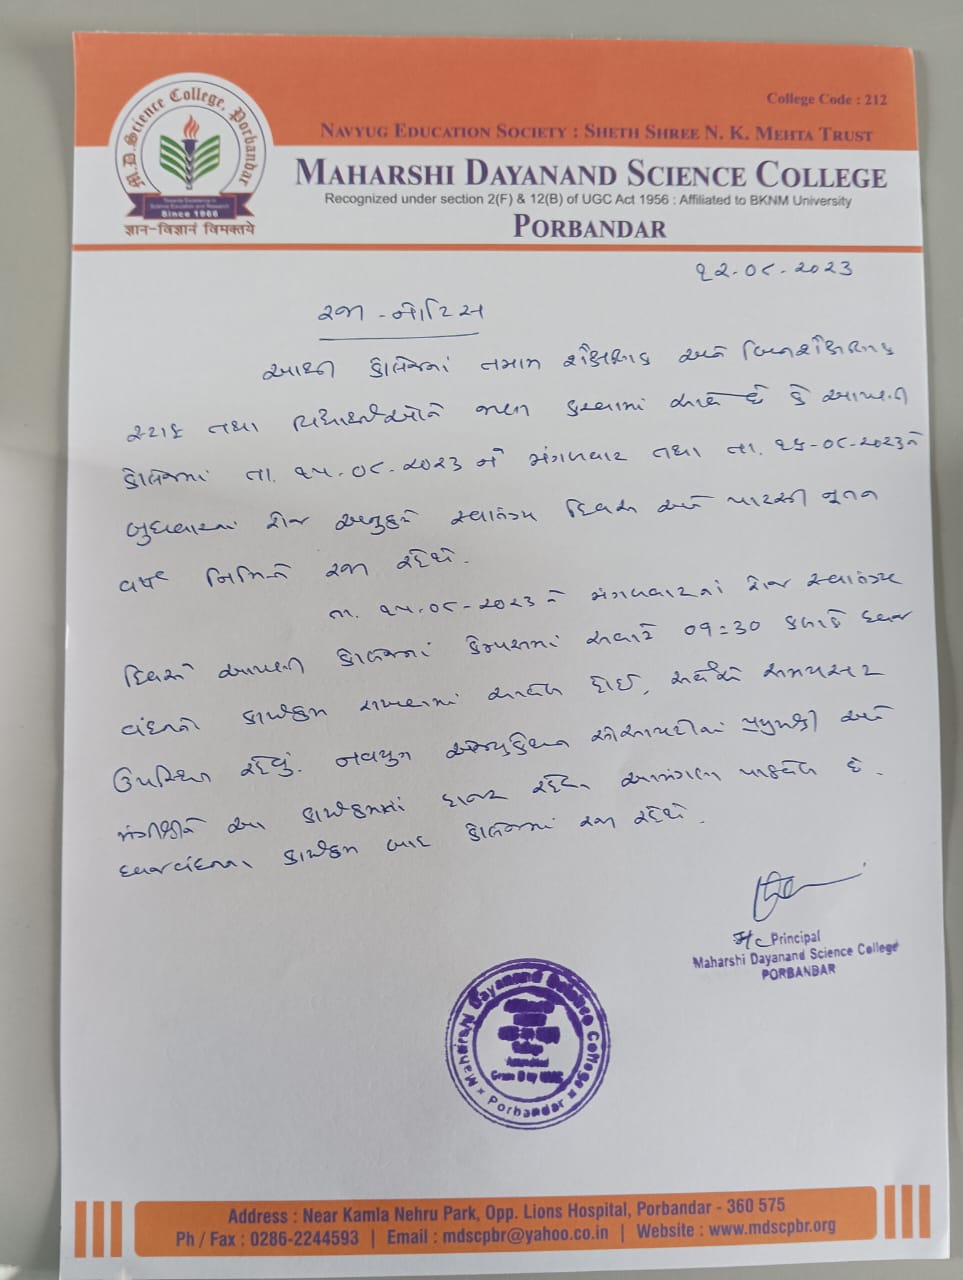 College Code : 212
NAVYUG EDUCATION SOCIETY : SHETH SHREE N. K. MEHTA TRUST
MAHARSHI DAYANAND SCIENCE COLLEGE
Recognized under section 2(F) & 12(B) of UGC Act 1956 : Affiliated to BKNM University
PORBANDAR
M.D.Science College, Porbandar
Towards Excellence in
Science Education and Research
Since 1966
ज्ञान-विज्ञानं विमक्तये
૧૨.૦૮.૨૦૨૩
રજા - નોટિસ
આથી કોલેજનાં તમામ શૈક્ષણિક અને બિનશૈક્ષણિક
સ્ટાફ તથા વિદ્યાર્થીઓને જાણ કરવામાં આવે છે કે આપણી
કોલેજમાં તા. ૧૫.૦૮.૨૦૨૩ ને મંગળવાર તથા તા. ૧૬-૦૮-૨૦૨૩ને
બુધવારનાં રોજ અનુક્રમે સ્વાતંત્ર્ય દિવસ અને પારસી નૂતન
વર્ષ નિમિત્તે રજા રહેશે.
તા. ૧૫-૦૮-૨૦૨૩ ને મંગળવારનાં રોજ સ્વાતંત્ર્ય
દિવસે આપણી કોલેજનાં કેમ્પસમાં સવારે 09:30 કલાકે ધ્વજ
વંદનનો કાર્યક્રમ રાખવામાં આવેલ હોઈ, સર્વેએ સમયસર
ઉપસ્થિત રહેવું. નવયુગ એજ્યુકેશન સોસાયટીનાં પ્રમુખશ્રી અને
મંત્રીશ્રીને આ કાર્યક્રમમાં હાજર રહેવા આમંત્રણ પાઠવેલ છે.
ધ્વજવંદનના કાર્યક્રમ બાદ કોલેજમાં રજા રહેશે.
I/c Principal
Maharshi Dayanand Science College
PORBANBAR
Maharshi Dayanand Science College
College
Accredited
Porbandar
Address : Near Kamla Nehru Park, Opp. Lions Hospital, Porbandar - 360 575
Ph / Fax : 0286-2244593 | Email : mdscpbr@yahoo.co.in | Website : www.mdscpbr.org